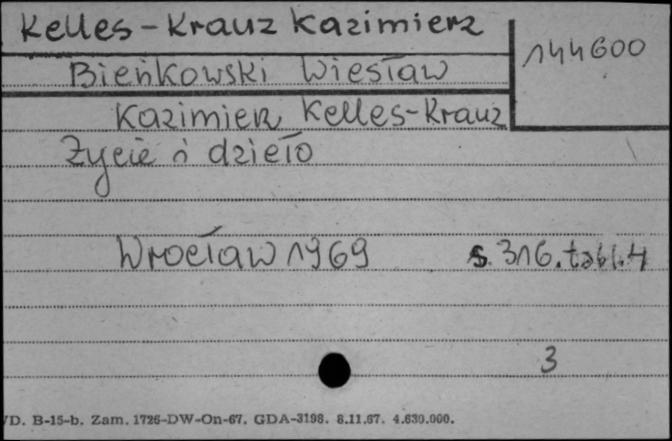 Kelles-Krauz Kazimierz
144600
Bieńkowski Wiesław
Kazimierz Kelles-Krauz
Życie i dzieło
Wrocław 1969 s. 316. tabl. 4
3
/D. B-15-b. Zam. 1726-DW-On-67. GDA-3198. 8.11.67. 4.630.000.